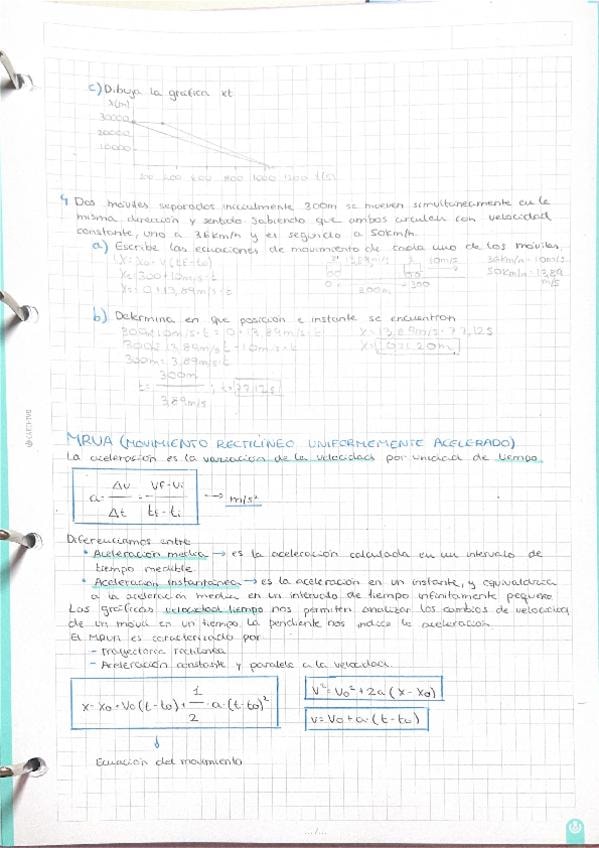 c) Dibuja la gráfica xt
x(m)
30000
20000
10000
200 400 600 800 1000 1200 t(s)
4 Dos móviles separados inicialmente 300m se mueven simultáneamente en la
misma dirección y sentido. Sabiendo que ambos circulan con velocidad
constante, uno a 36km/h y el segundo a 50km/h.
a) Escribe las ecuaciones de movimiento de cada uno de los móviles.
13,89m/s 10m/s 36km/h = 10m/s
x2=300+10m/s·t 50km/h = 13,89
x1=0+13,89m/s·t 300m 300 m/s
b) Determina en que posición e instante se encuentran
300+10m/s·t = 0+13,89m/s·t x=13,89m/s·77,12s
300=13,89m/s·t-10m/s·t x=1071,20m
300m=3,89m/s·t
t= 300m / 3,89m/s ; t=77,12s
MRUA (MOVIMIENTO RECTILÍNEO UNIFORMEMENTE ACELERADO)
La aceleración es la variación de la velocidad por unidad de tiempo.
a= Δv / Δt = vf-vi / tf-ti → m/s²
Diferenciamos entre
• Aceleración media → es la aceleración calculada en un intervalo de
tiempo medible.
• Aceleración instantánea → es la aceleración en un instante, y equivaldría
a la aceleración media en un intervalo de tiempo infinitamente pequeño.
Las gráficas velocidad tiempo nos permiten analizar los cambios de velocidad
de un móvil en un tiempo. La pendiente nos indica la aceleración.
El MRUA es caracterizado por
- Trayectoria rectilínea
- Aceleración constante y paralela a la velocidad.
x=x0+v0(t-t0)+ 1/2 ·a·(t-t0)² v²=v0²+2a(x-x0)
v=v0+a·(t-t0)
↓
Ecuación del movimiento
.../...